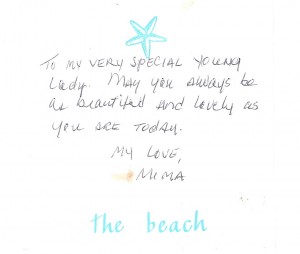 To my very special young
lady. May you always be
as beautiful and lovely as
you are today.
My love,
Mima
the beach